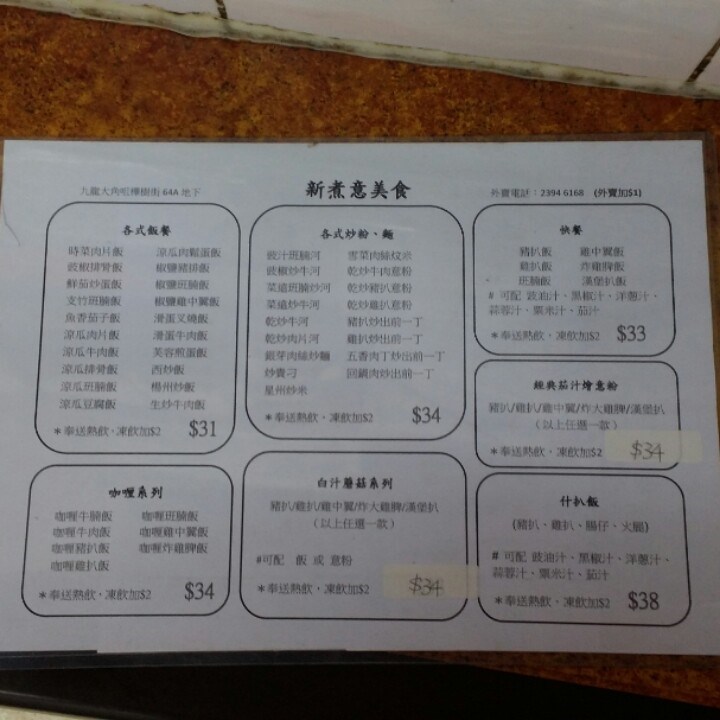 九龍大角咀櫻樹街 64A 地下
新煮意美食
外賣電話：2394 6168 (外賣加$1)
各式飯餐
時菜肉片飯 涼瓜肉鬆蛋飯
豉椒排骨飯 椒鹽豬排飯
鮮茄炒蛋飯 椒鹽班腩飯
支竹班腩飯 椒鹽雞中翼飯
魚香茄子飯 滑蛋叉燒飯
涼瓜肉片飯 滑蛋牛肉飯
涼瓜牛肉飯 芙蓉煎蛋飯
涼瓜排骨飯 西炒飯
涼瓜班腩飯 楊州炒飯
涼瓜豆腐飯 生炒牛肉飯
＊奉送熱飲，凍飲加$2 $31
各式炒粉、麵
豉汁班腩河 雪菜肉絲炆米
豉椒炒牛河 乾炒牛肉意粉
菜遠班腩炒河 乾炒豬扒意粉
菜遠炒牛河 乾炒雞扒意粉
乾炒牛河 豬扒炒出前一丁
乾炒肉片河 雞扒炒出前一丁
銀芽肉絲炒麵 五香肉丁炒出前一丁
炒貴刁 回鍋肉炒出前一丁
星州炒米
＊奉送熱飲，凍飲加$2 $34
快餐
豬扒飯 雞中翼飯
雞扒飯 炸雞脾飯
班腩飯 漢堡扒飯
# 可配 豉油汁、黑椒汁、洋蔥汁、
蒜蓉汁、粟米汁、茄汁
＊奉送熱飲，凍飲加$2 $33
經典茄汁燴意粉
豬扒/雞扒/雞中翼/炸大雞脾/漢堡扒
（以上任選一款）
＊奉送熱飲，凍飲加$2 $34
咖喱系列
咖喱牛腩飯 咖喱班腩飯
咖喱牛肉飯 咖喱雞中翼飯
咖喱豬扒飯 咖喱炸雞脾飯
咖喱雞扒飯
＊奉送熱飲，凍飲加$2 $34
白汁蘑菇系列
豬扒/雞扒/雞中翼/炸大雞脾/漢堡扒
（以上任選一款）
#可配 飯 或 意粉
＊奉送熱飲，凍飲加$2 $34
什扒飯
(豬扒、雞扒、腸仔、火腿)
# 可配 豉油汁、黑椒汁、洋蔥汁、
蒜蓉汁、粟米汁、茄汁
＊奉送熱飲，凍飲加$2 $38